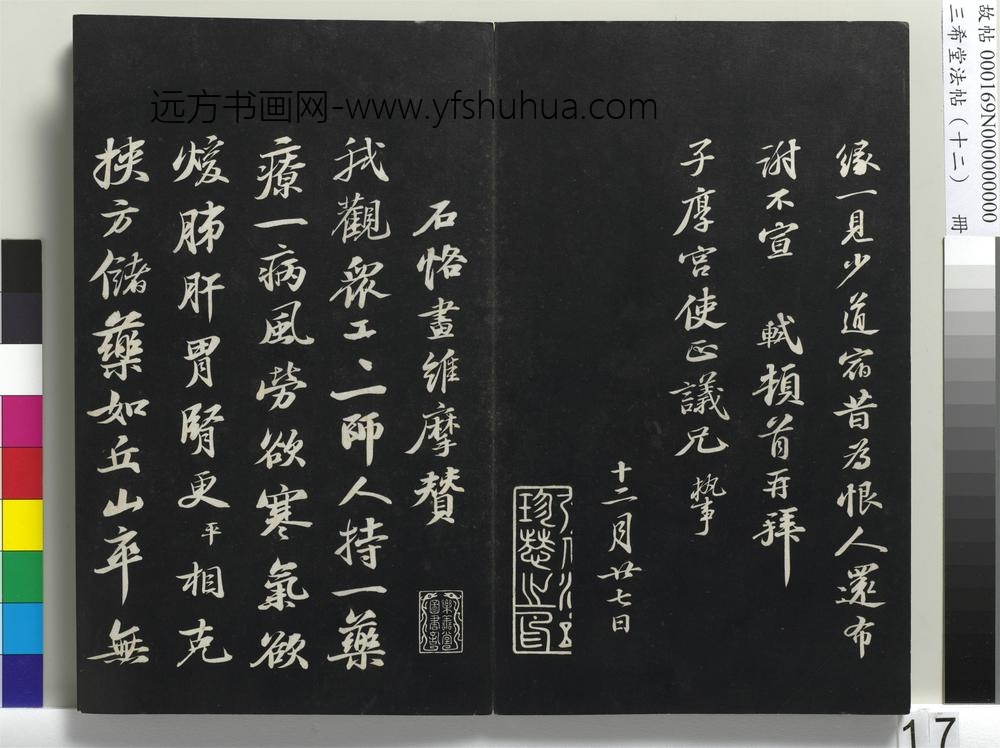 缘一見少道宿昔為恨人還布
謝不宣 軾頓首再拜
子厚宮使正議兄執事
十二月廿七日
石恪畫維摩贊
我觀眾工工師人持一藥
療一病風勞欲寒氣欲
煖肺肝胃腎更平相克
挾方儲藥如丘山卒無
远方书画网-www.yfshuhua.com
故帖 000169N000000000
三希堂法帖（十二） 冊
17